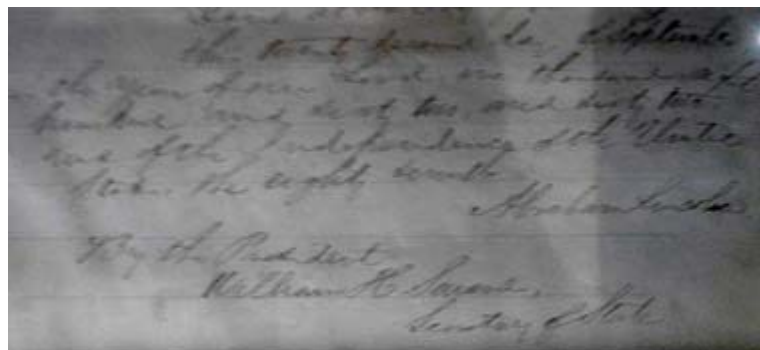 the twenty second day of September
the year of our Lord, one thousand eight
hundred and sixty two, and of the
Independence of the United
States the eighty seventh
Abraham Lincoln
By the President
William H. Seward,
Secretary of State